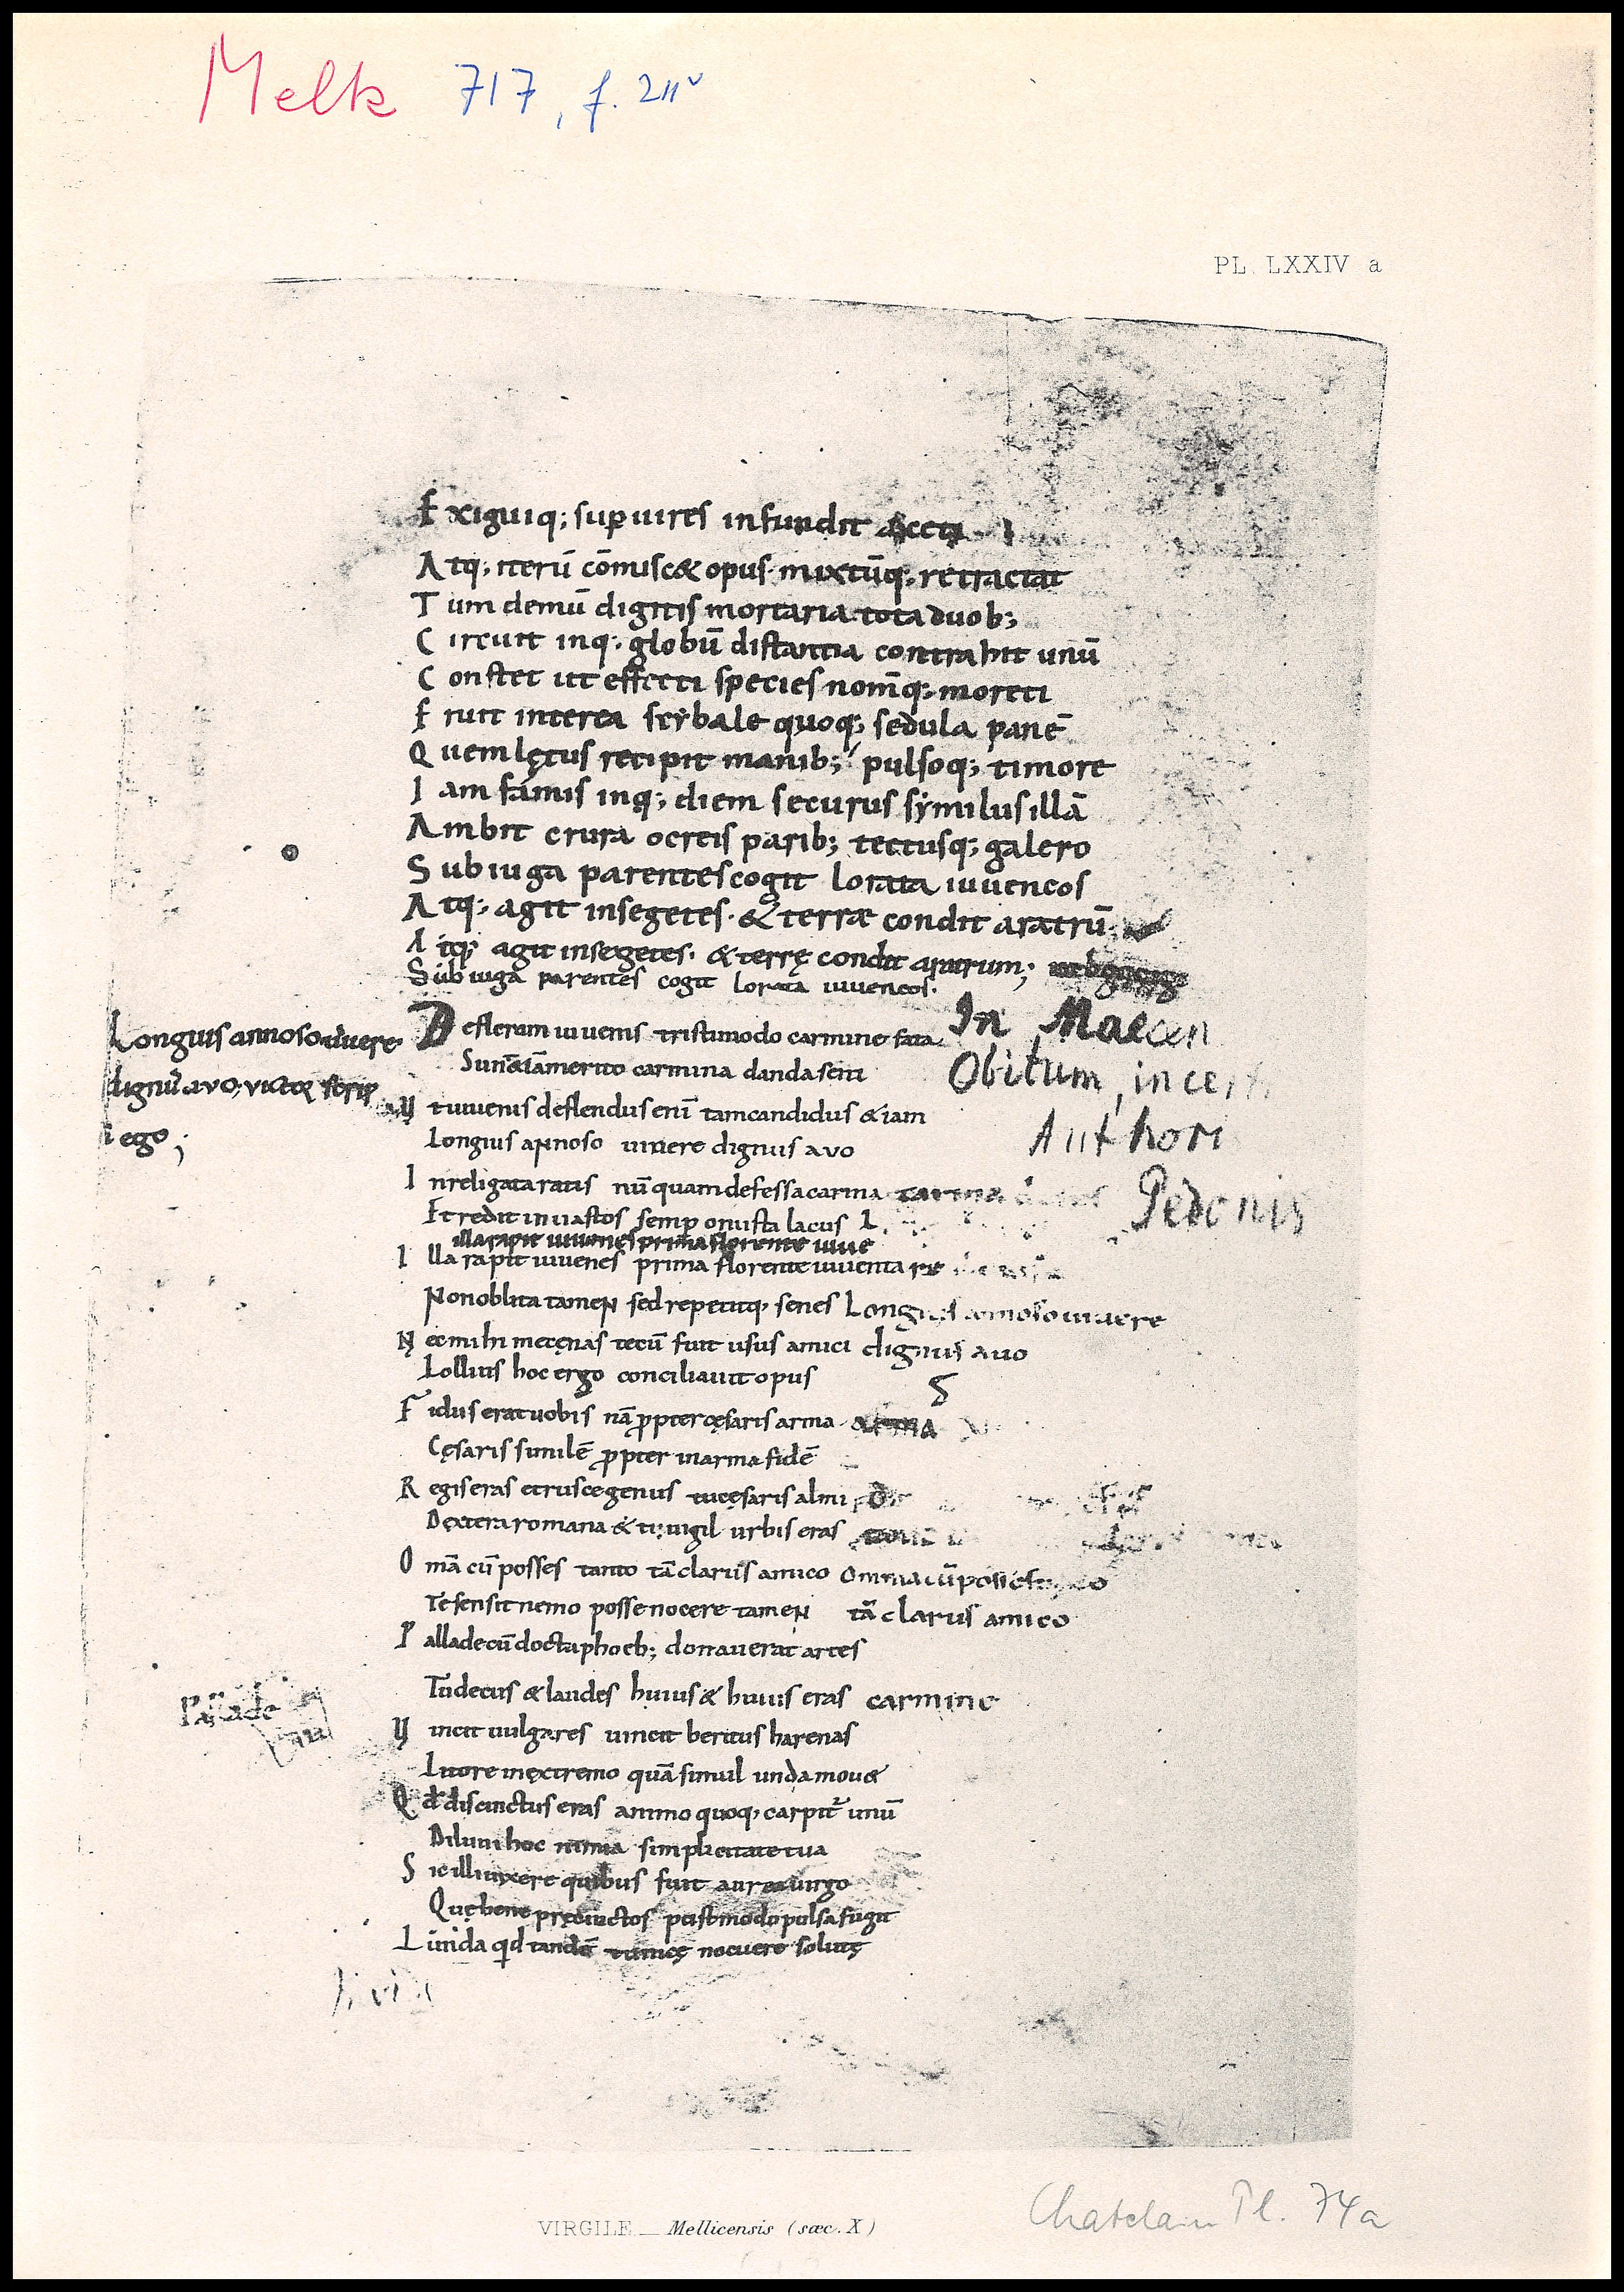 Melk 717, f. 211v
PL. LXXIV a
Exiguiq; sup uires infundit acceti
Atq; iterū cōmisc& opus mixtūq; retractat
Tum demū digitis mortaria tota duob;
Circuit inq; globū distantia contrahit unū
Constet ut effecti species nom̄q; moreti
Eruit interea scybale quoq; sedula panē
Quem lętus recipit manib; pulsoq; timore
Iam famis inq; diem securus symilus illā
Ambit crura ocreis parib; tectusq; galero
Sub iuga parentes cogit lorata iuuencos
Atq; agit insegetes. & terræ condit aratrū
Atq; agit insegetes. & terrę condit aratrum;
Sub iuga parentes cogit lorata iuuencos.
Defleram iuuenis tristi modo carmine fata
In Maecen
Sun&iāmerito carmina danda seni
Obitum, incerti
Longuis annoso uiuere
dignu' avo, victor
i ego;
Vt iuuenis deflendus enī tamcandidus & iam
Longius annoso uiuere dignus avo
Authori
Inreligata ratis nū quam defessa carina
Pedonis
Et redit in uastos semp onusta lacus
illa rapit iuuenes prima florente iuue
Illa rapit iuuenes prima florente iuuenta
Non oblita tamen sed repetitq; senes Longius annoso uiuere
Nec mihi mecęnas tecū fuit usus amici dignus auo
Lollius hoc ergo conciliauit opus
Fidus erat uobis nā ppter cęsaris arma
Cęsaris similē ppter inarma fidē
Regis eras etrusce genus tu cęsaris almi
Dextera romana & tu uigil urbis eras
Omā cū posses tanto tā clarus amico Omnia cū posses
Te sensit nemo posse nocere tamen tā clarus amico
Pallade cū docta phoeb; donauerat artes
Tu decus & laudes huius & huius eras carmine
Pallade
Vincit uulgares uincit beritus harenas
Litore inextremo quā simul unda mou&
Qd discinctus eras animo quoq; carpit unū
Diluui hoc nimia simplicitate tua
Sic illi uixere quibus fuit aurea uirgo
Quę bene pręcinctos postmodo pulsa fugit
Liuida qd tandē tunicę nocuere solutę
livida
VIRGILE — Mellicensis (sæc. X)
Chatelain Pl. 74a